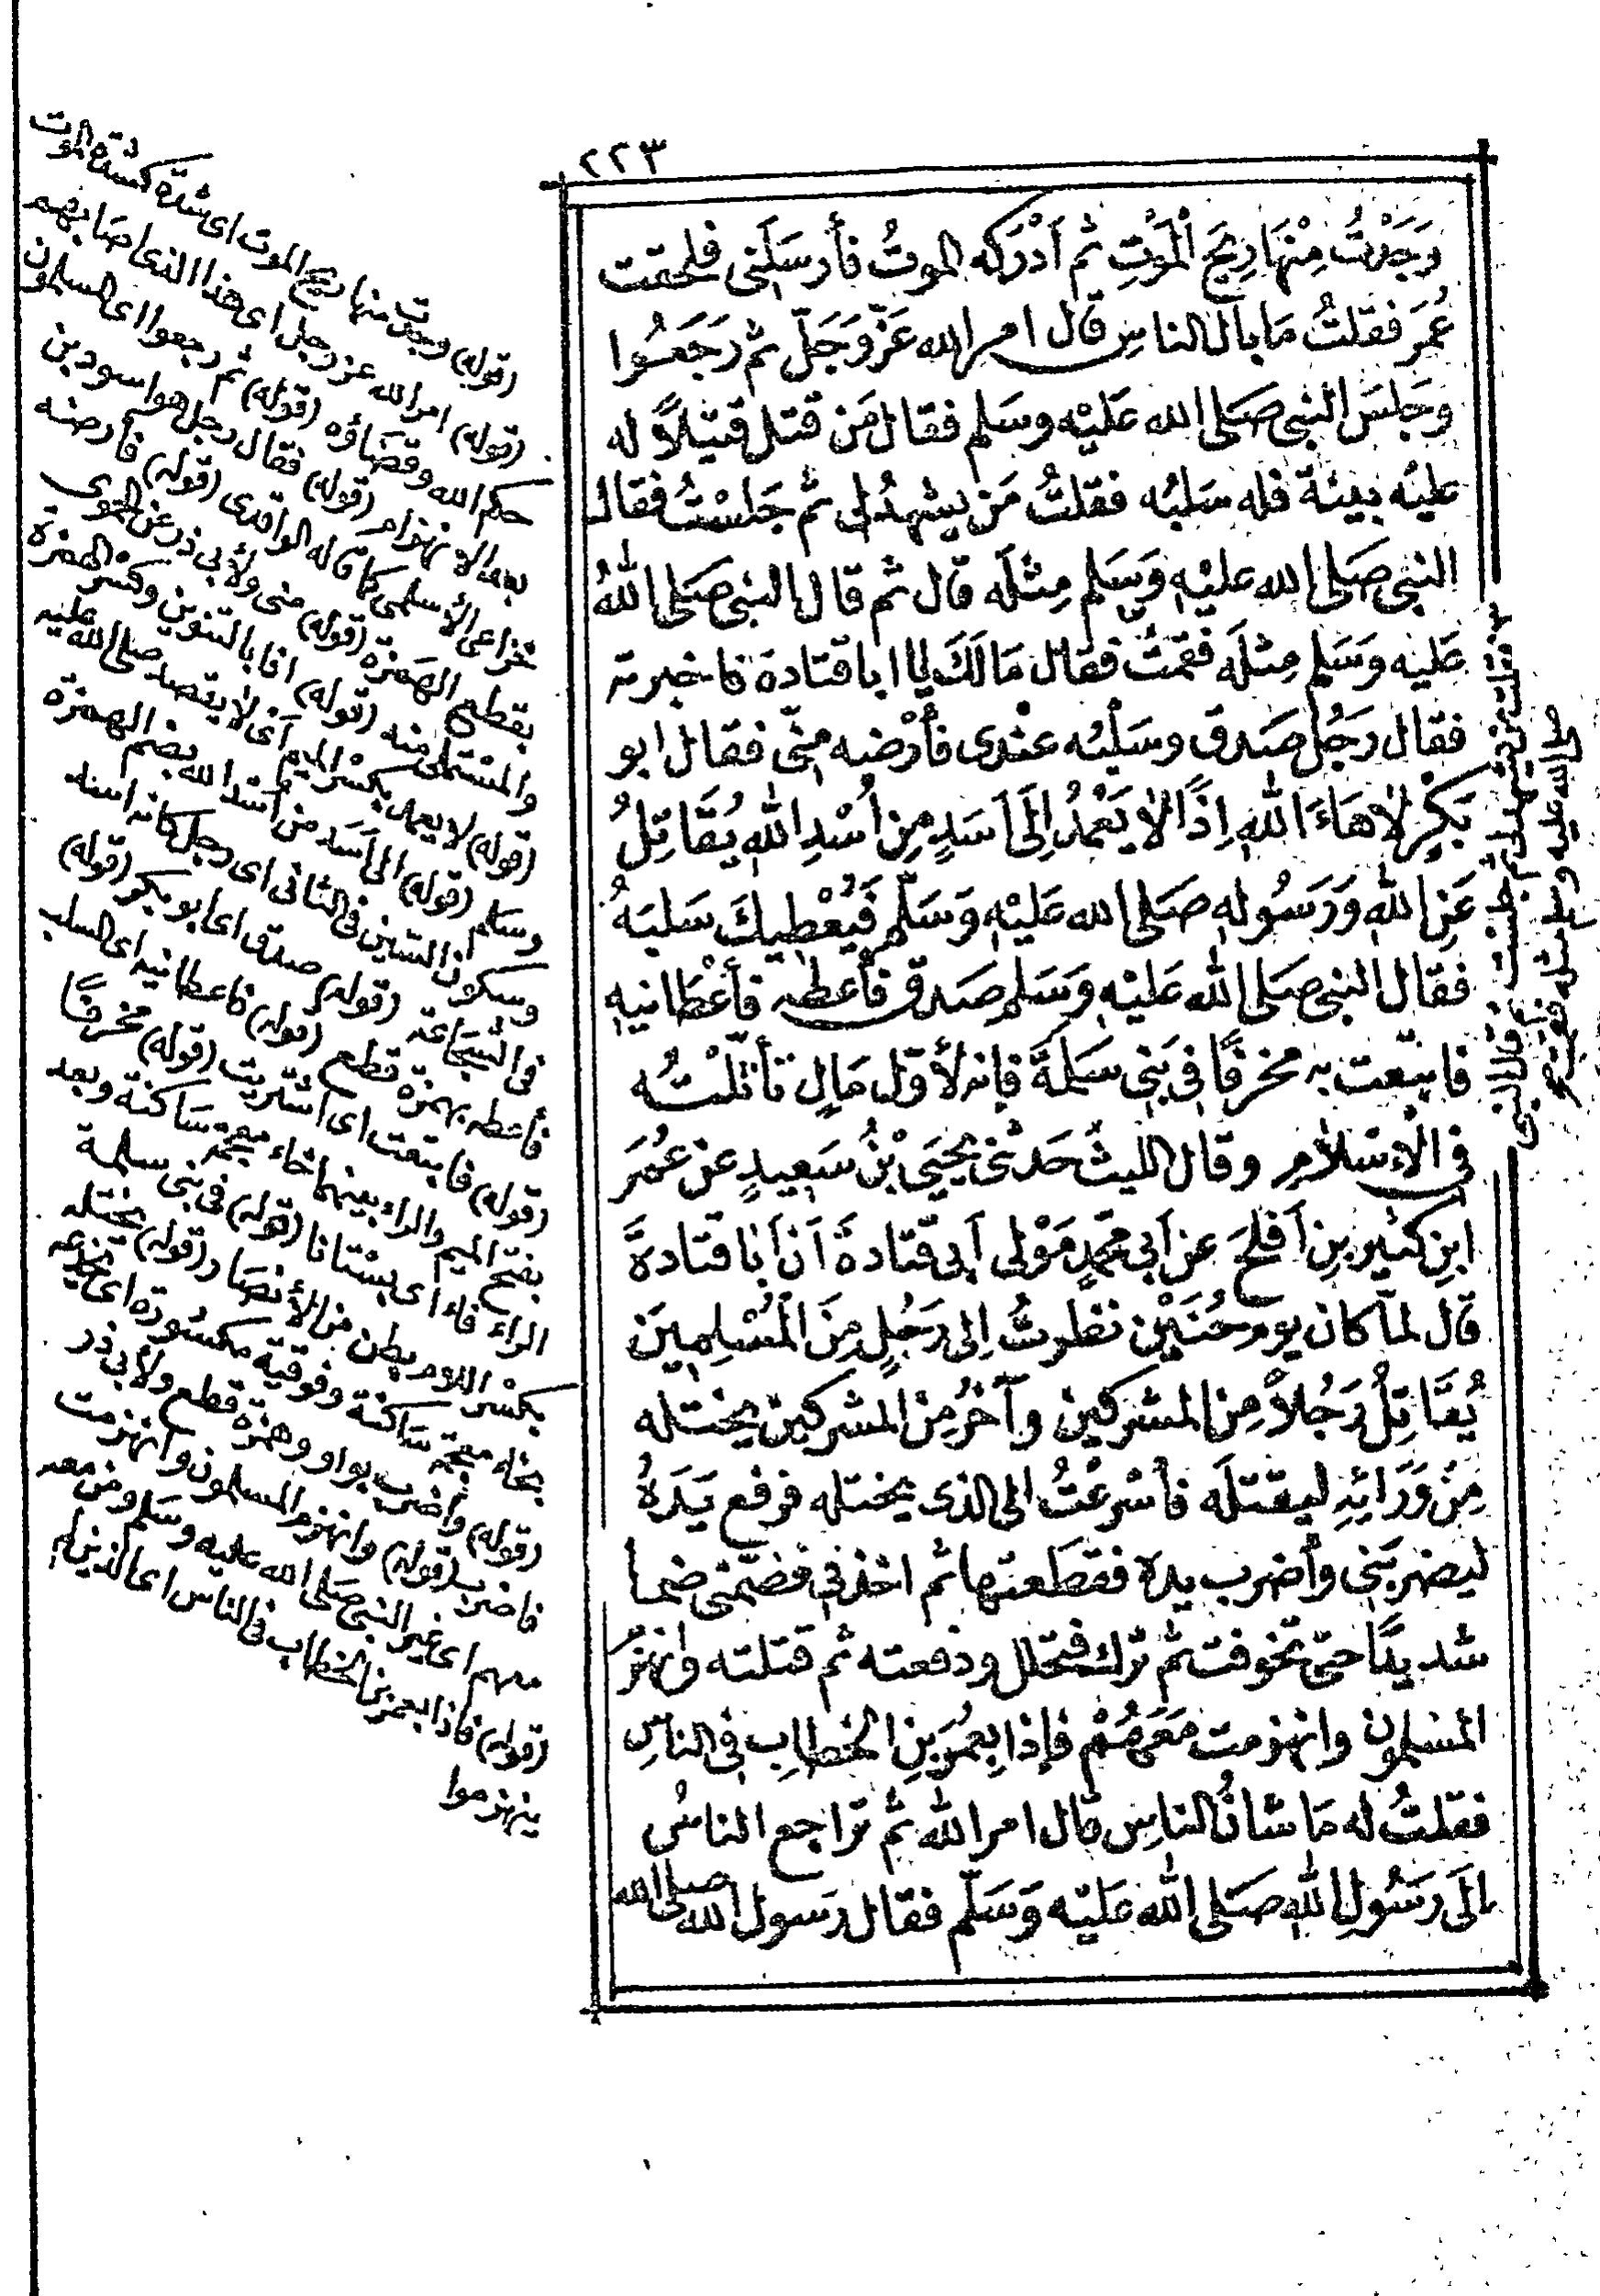 ٢٢٣
وَجَدْتُ مِنْهَا رِيحَ الْمَوْتِ ثم اَدْرَكه الموتُ فأرسَلَنى فلحقت
عُمَرَ فقلتُ مَا بالُ الناسِ قال امر الله عَزَّ وَجَلَّ ثم رَجَعُوا
وجَلسَ النبى صَلى الله عَليْه وسَلم فقال مَن قتل قتيْلاً له
عليْه بينة فله سَلبُه فقلتُ مَن يشهدُ لى ثم جَلسْتُ فقال
النبى صَلى الله عليْهِ وَسَلم مِثلَه قال ثم قال النبى صَلى اللهُ
عَليه وسَلم مِثلَه فقمتُ فقال مَا لَكَ يا ابا قتادة فاخبرته
فقال رَجُل صَدق وسَلبُه عندى فأرْضه مِنّى فقال ابو
بَكرٍ لاهَاءَ اللهِ اِذًا لا يَعْمِدُ اِلَى اَسَدٍ مِن اُسْدِ اللهِ يُقَاتِلُ
عَنِ اللهِ وَرَسُولهِ صَلى الله عَليْهِ وَسَلَّم فَيُعْطِيكَ سَلبَهُ
فقال النبى صَلى الله عَليْهِ وَسَلم صَدق فأعْطه فأعْطانيهِ
فابتعت به مخرفًا فى بَنى سَلمةَ فإنه لأوّل مَالٍ تأثّلْتُه
فى الْاسْلامِ وقال الليث حَدثنى يحْيَى بْنُ سَعِيدٍ عن عُمَرَ
ابنِ كثيرِ بنِ اَفلحَ عن اَبى محمّدٍ مَوْلى اَبى قتادةَ اَن اَبا قتادةَ
قال لمَّا كان يوم حُنَيْن نظرتُ اِلى رَجُلٍ مِنَ الْمُسْلِمِينَ
يُقَاتِلُ رَجُلاً مِن المشركين وآخَرُ مِن المشركين يختله
مِنْ وَرَائِهِ ليقتله فأسْرعْتُ الى الذى يختله فرفع يَدَهُ
ليضربَنى وأضرب يده فقطعتها ثم اخذنى فضمّنى ضما
شديدًا حتى تخوفت ثم ترك فتحلل ودفعته ثم قتلته وانهزمَ
المسلمون وانهزمت مَعَهُمْ فإذا بِعُمَرَ بنِ الخطابِ فى الناسِ
فقلتُ له مَا شانُ الناسِ قال امر الله ثم تراجع الناسُ
الَى رَسُولِ اللهِ صَلى اللهُ عَليْه وَسَلم فقال رَسول الله صلى الله
من قلت من يشهد لى ثم جلست ثم قال النبى
صلى الله عليه وسلم مثله فقمت
(قوله) وجدت منها ريح الموت اى شدة كشدة الموت
(قوله) امر الله عز وجل اى هذا الذى اصابهم
حكم الله وقضاؤه (قوله) ثم رجعوا اى المسلمون
بعد الانهزام (قوله) فقال رجل هو اسود بن
خزاعى الأسلمى كما قاله الواقدى (قوله) فأرضه
بقطع الهمزة (قوله) منى ولأبى ذر عن الحموى
والمستملى منه (قوله) اذا بالتنوين وكسر الهمزة
(قوله) لا يعمد بكسر الميم اى لا يقصد صلى الله عليه
وسلم (قوله) الى اسَد من أسْد الله بضم الهمزة
وسكون السّين فى الثانى اى رجل كانه اسد
فى الشجاعة (قوله) صدق اى ابو بكر (قوله)
فأعطه بهمزة قطع (قوله) فاعطانيه اى السلب
(قوله) فابتعت اى اشتريت (قوله) مخرفًا
بفتح الميم والراء بينهما خاء معجمة سَاكنة وبعد
الراء فاء اى بستانا (قوله) فى بنى سلمة
بكسر اللام بطن من الأنصار (قوله) يختله
بخاء معجمة سَاكنة وفوقية مكسورة اى يخدعه
(قوله) وأضرب بواو وهمزة قطع ولأبى ذر
فاضرب (قوله) وانهزم المسلمون وانهزمت
معهم اى غير النبى صَلى الله عليه وسَلم ومن معه
(قوله) فاذا بعمر بن الخطاب فى الناس اى الذين لم
ينهزموا